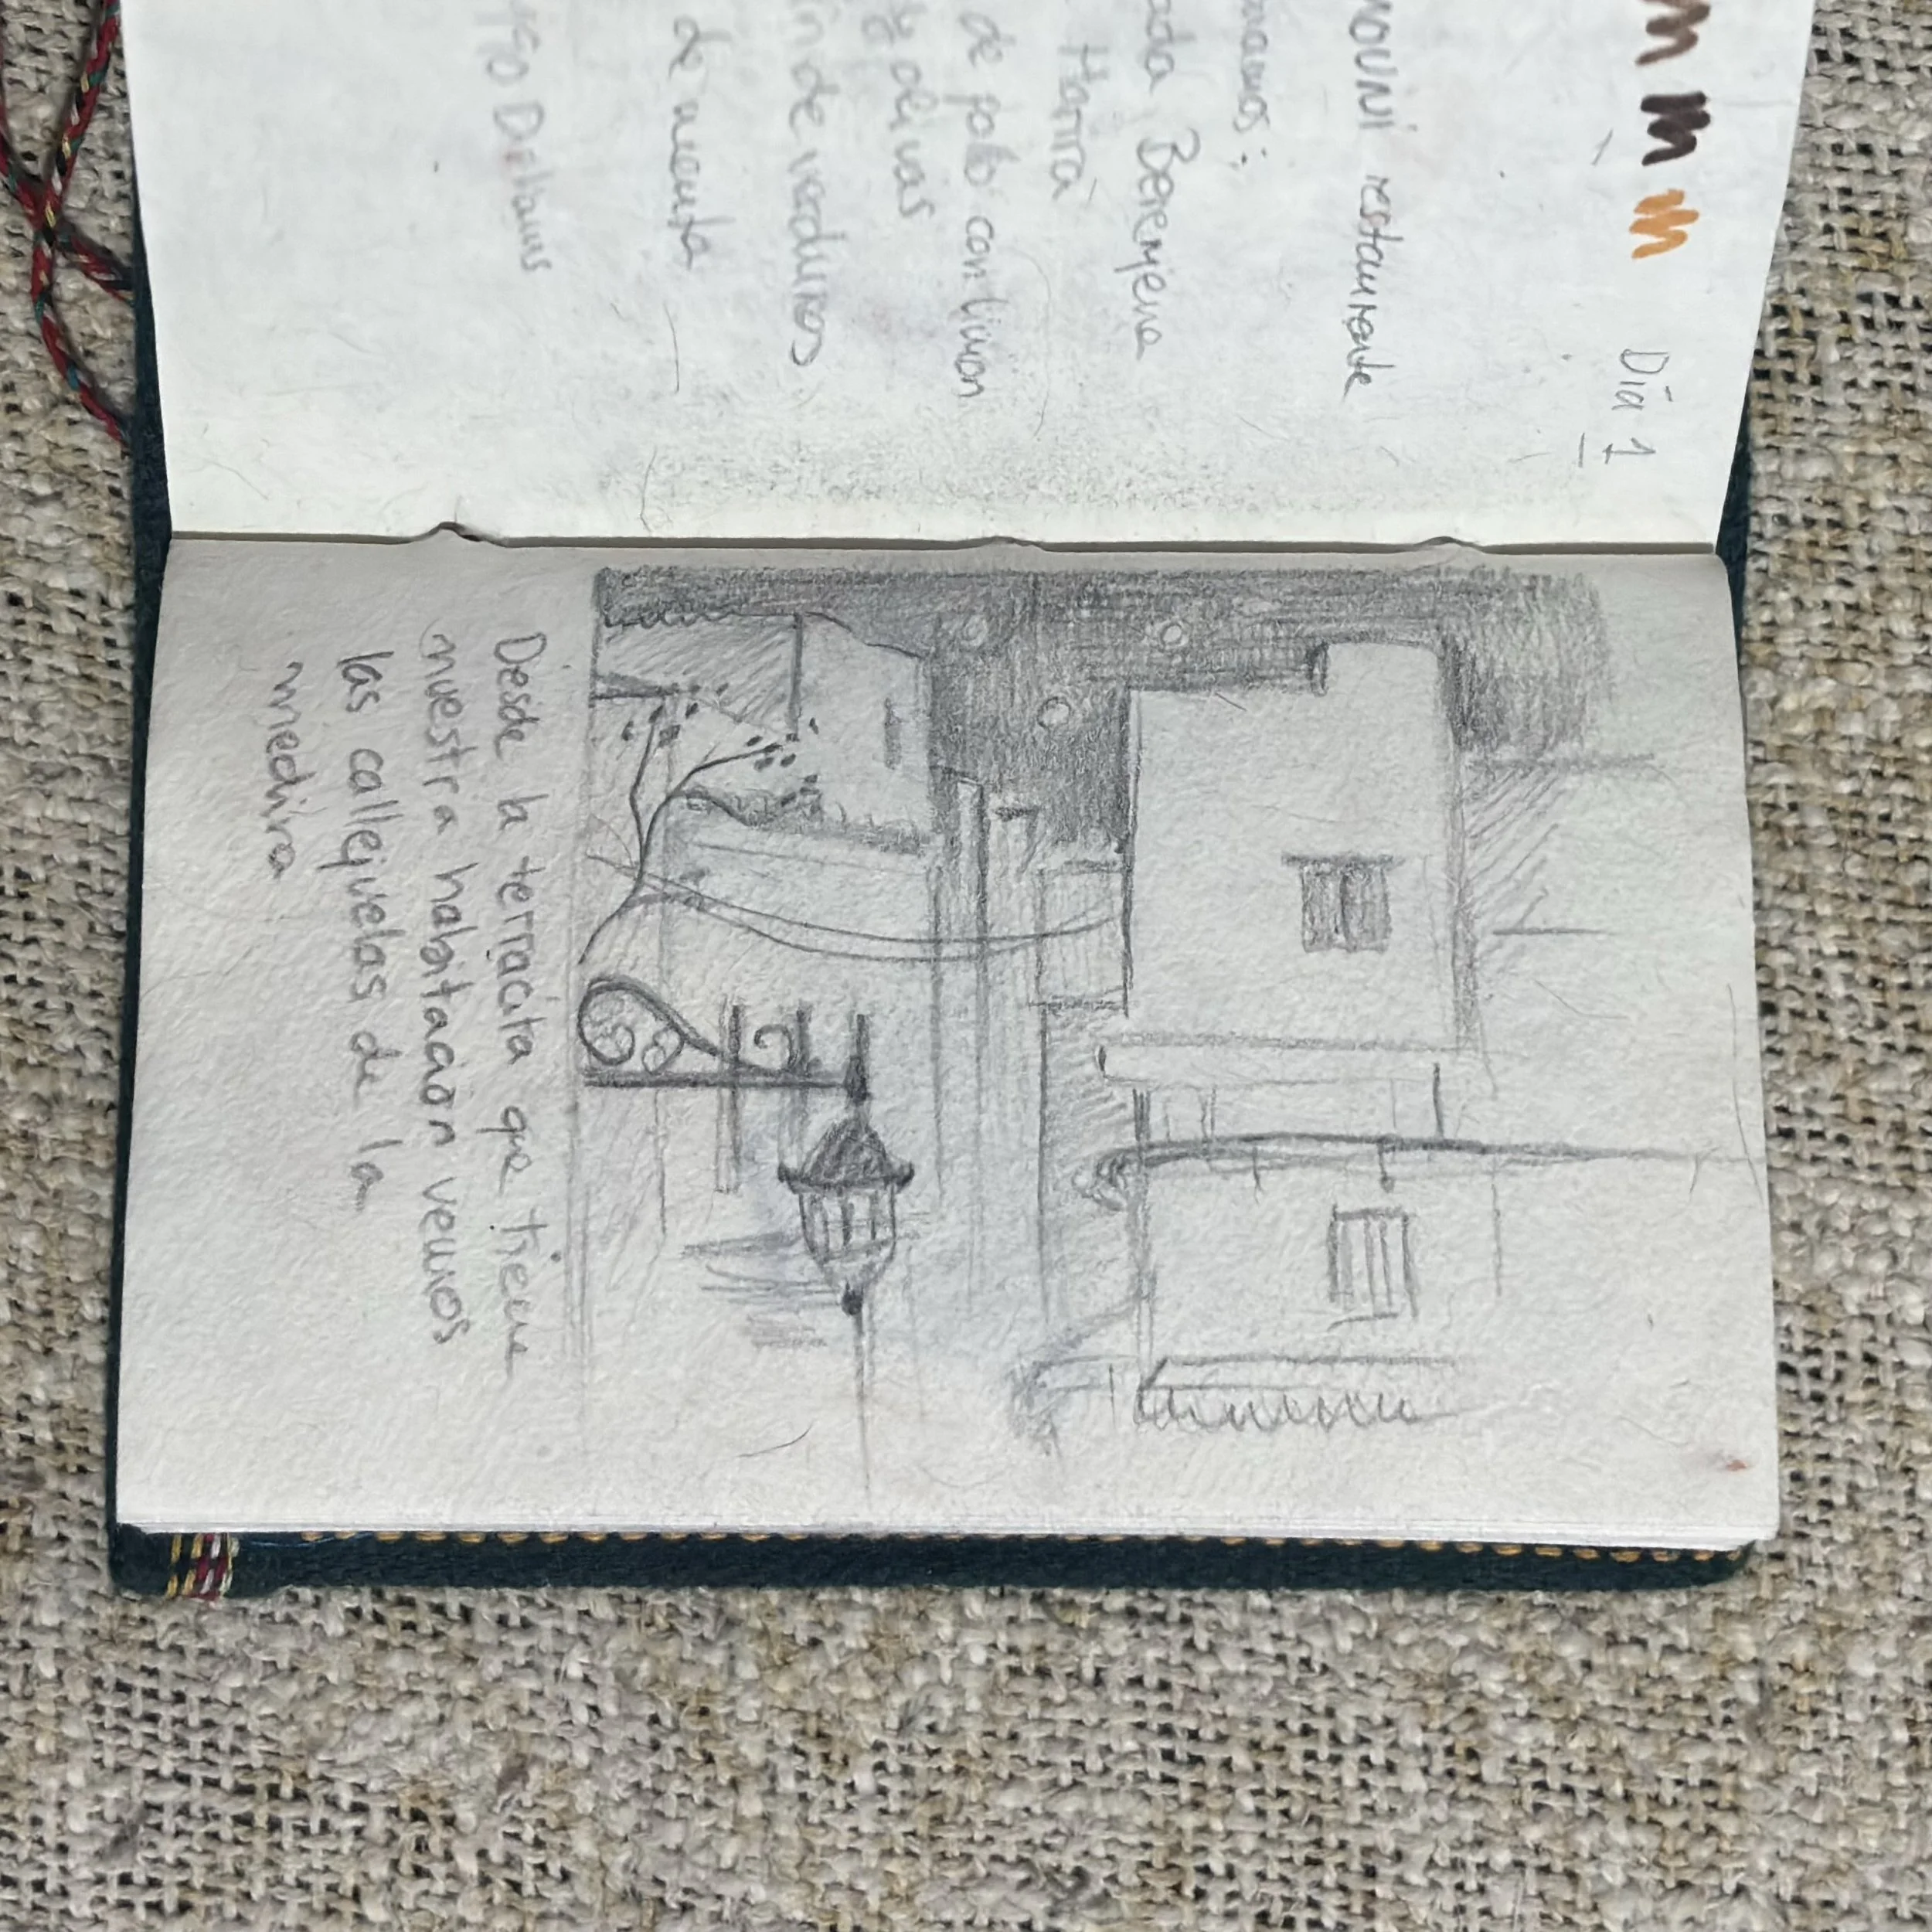 Día 1
restaurante
Berenjena
Harira
de pollo con limon
y olivas
de verduras
de menta
Desde la terracita que tiene
nuestra habitación vemos
las callejuelas de la
medina